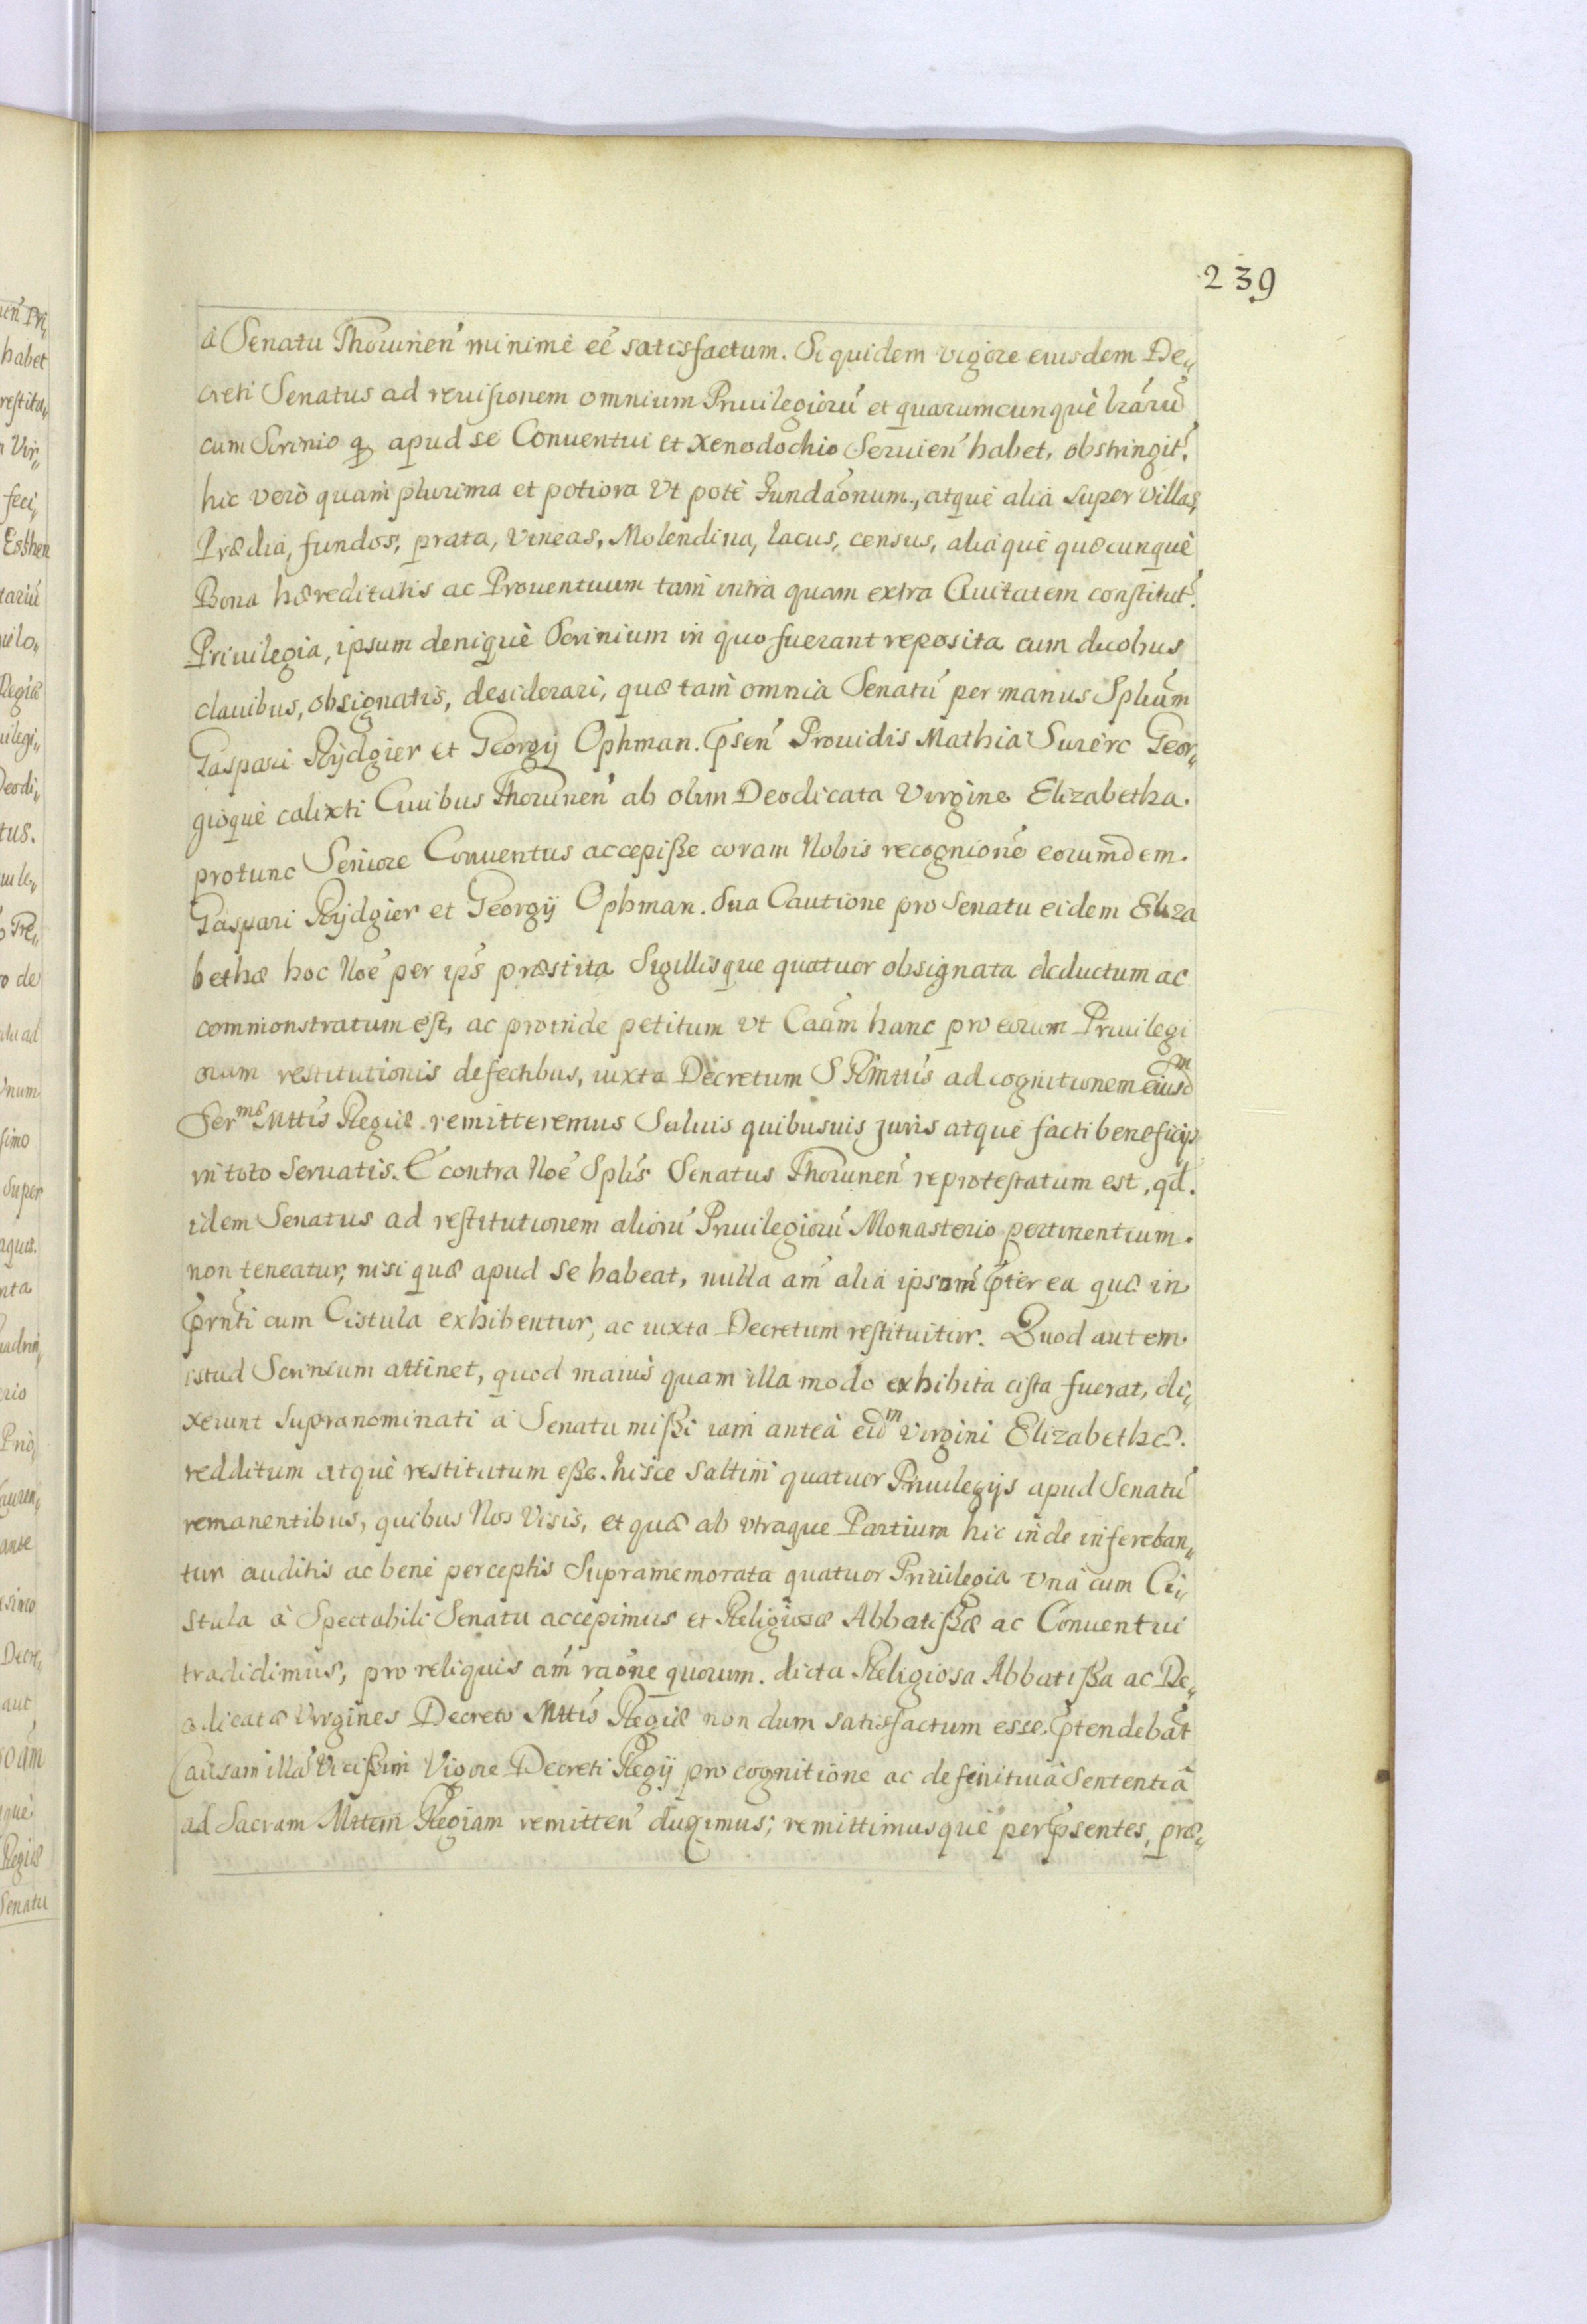 239
à Senatu Thorunen̄ minimè eē satisfactum. Siquidem vigore eiusdem De„
creti Senatus ad reuisionem omnium Priuilegiorū et quarumcunquè lrārū
cum Scrinio q̃ apud se Conuentui et Xenodochio Seruien̄ habet, obstringit̄.
hic verò quam plurima et potiora Vt potè Fundāonum., atquè alia super villas,
Prædia, fundos, prata, vineas, Molendina, lacus, census, aliaquè quæcunquè
Bona hæreditatis ac Prouentuum tam intra quam extra Ciuitatem constitut̄.
Priuilegia, ipsum deniquè Scrinium in quo fuerant reposita cum duobus
clauibus, obsignatis, desiderari, quæ tam omnia Senatū per manus Splium̄
Gaspari Rÿdgier et Georgij Ophman. p̄sen̄ Prouidis Mathia Surerc Geor„
gioquè calixti Ciuibus Thorunen̄ ab olim Deodicata Virgine Elizabetha.
protunc Seniore Conuentus accepiße coram Nobis recognionē eorumdem.
Gaspari Rÿdgier et Georgij Ophman. Sua Cautione pro Senatu eidem Eliza
bethæ hoc Noē per ips̄ præstita Sigillisque quatuor obsignata deductum ac
commonstratum est, ac proinde petitum vt Caām hanc pro eorum Priuilegi
orum restitutionis defectibus, iuxta Decretum S R Mttis ad cognitionem eiusdm
Sermæ Mttis Regiæ remitteremus Saluis quibusuis Juris atque facti beneficijs
in toto Seruatis. E contra Noē Splis Senatus Thorunen̄ reprotestatum est, qd̄.
idem Senatus ad restitutionem aliorū Priuilegiorū Monasterio pertinentium.
non teneatur, nisi quæ apud se habeat, nulla am̄ alia ipsum p̄ter ea quæ in
prn̄ti cum Cistula exhibentur, ac iuxta Decretum restituitur. Quod autem
istud Scrinium attinet, quod maius quam illa modo exhibita cista fuerat, di„
xerunt supranominati à Senatu mißi iam anteà eidm Virgini Elizabethæ.
redditum atquè restitutum eße. hisce saltim quatuor Priuilegijs apud Senatū
remanentibus, quibus Nos Visis, et quæ ab vtraque Partium hic inde infereban„
tur auditis ac benè perceptis Supramemorata quatuor Priuilegia vnà cum Ci„
stula à Spectabili Senatu accepimus et Religiosæ Abbatißæ ac Conuentui
tradidimus, pro reliquis am̄ raōne quorum. dicta Religiosa Abbatißa ac De„
odicatæ Virgines Decreto Mttis Regiæ nondum satisfactum esse p̄tendebāt
Causam illā Vicißim Vigore Decreti Regij pro cognitione ac definitiua Sententiā
ad Sacram Mttem Regiam remitten̄ duximus; remittimusquè per p̄sentes, præ„